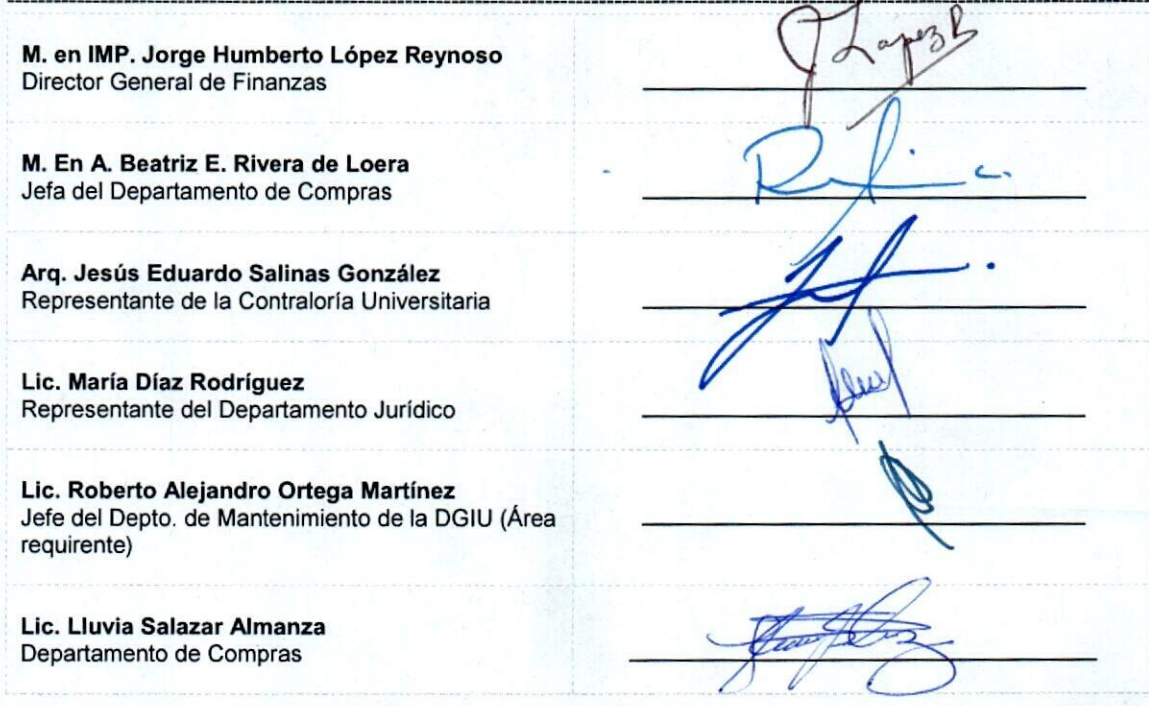 J Lopez R
M. en IMP. Jorge Humberto López Reynoso
Director General de Finanzas
M. En A. Beatriz E. Rivera de Loera
Jefa del Departamento de Compras
Arq. Jesús Eduardo Salinas González
Representante de la Contraloría Universitaria
Lic. María Díaz Rodríguez
Representante del Departamento Jurídico
Lic. Roberto Alejandro Ortega Martínez
Jefe del Depto. de Mantenimiento de la DGIU (Área
requirente)
Lic. Lluvia Salazar Almanza
Departamento de Compras